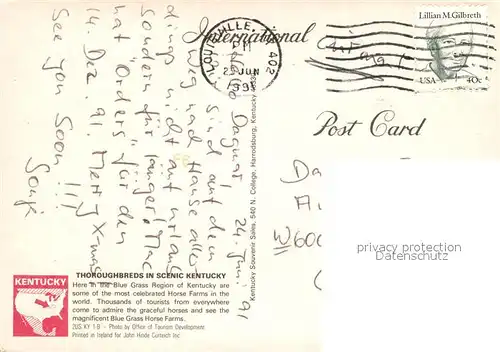 International
Post Card
Air mail
LOUISVILLE, KY 402
PM
25 JUN
1991
Lillian M. Gilbreth
USA 40c
24. Juni 91
Hallo Dagmar!
sind auf dem
Weg nach Hause aller-
dings nicht auf Urlaub
sondern für länger! Mac
hat "Orders" für den
14. Dez 91. Merry X-mas
See you soon !!!
Da
W600
privacy protection
Datenschutz
KENTUCKY
THOROUGHBREDS IN SCENIC KENTUCKY
Here in the Blue Grass Region of Kentucky are
some of the most celebrated Horse Farms in the
world. Thousands of tourists from everywhere
come to admire the graceful horses and see the
magnificent Blue Grass Horse Farms.
2US KY 1-B - Photo by Office of Tourism Development
Printed in Ireland for John Hinde Curteich Inc
Kentucky Souvenir Sales, 540 N. College, Harrodsburg, Kentucky